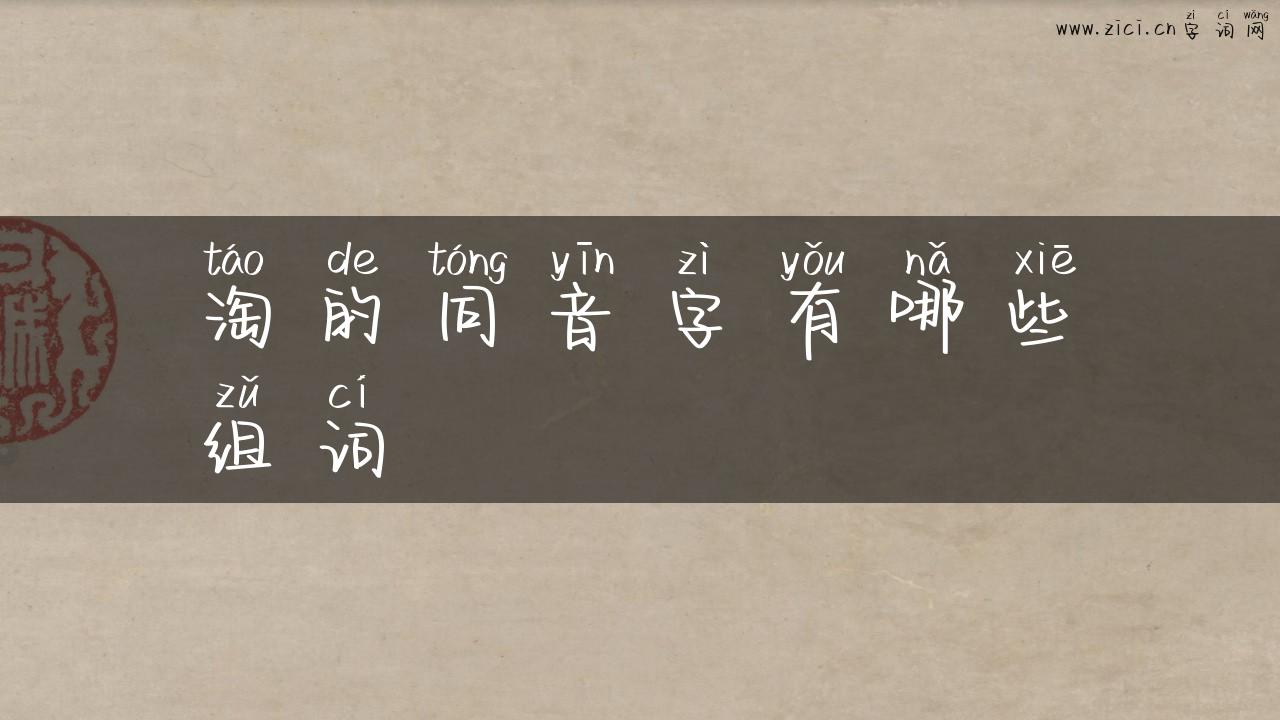 zì cí wǎng
www.zici.cn字词网
táo de tóng yīn zì yǒu nǎ xiē
淘的同音字有哪些
zǔ cí
组词